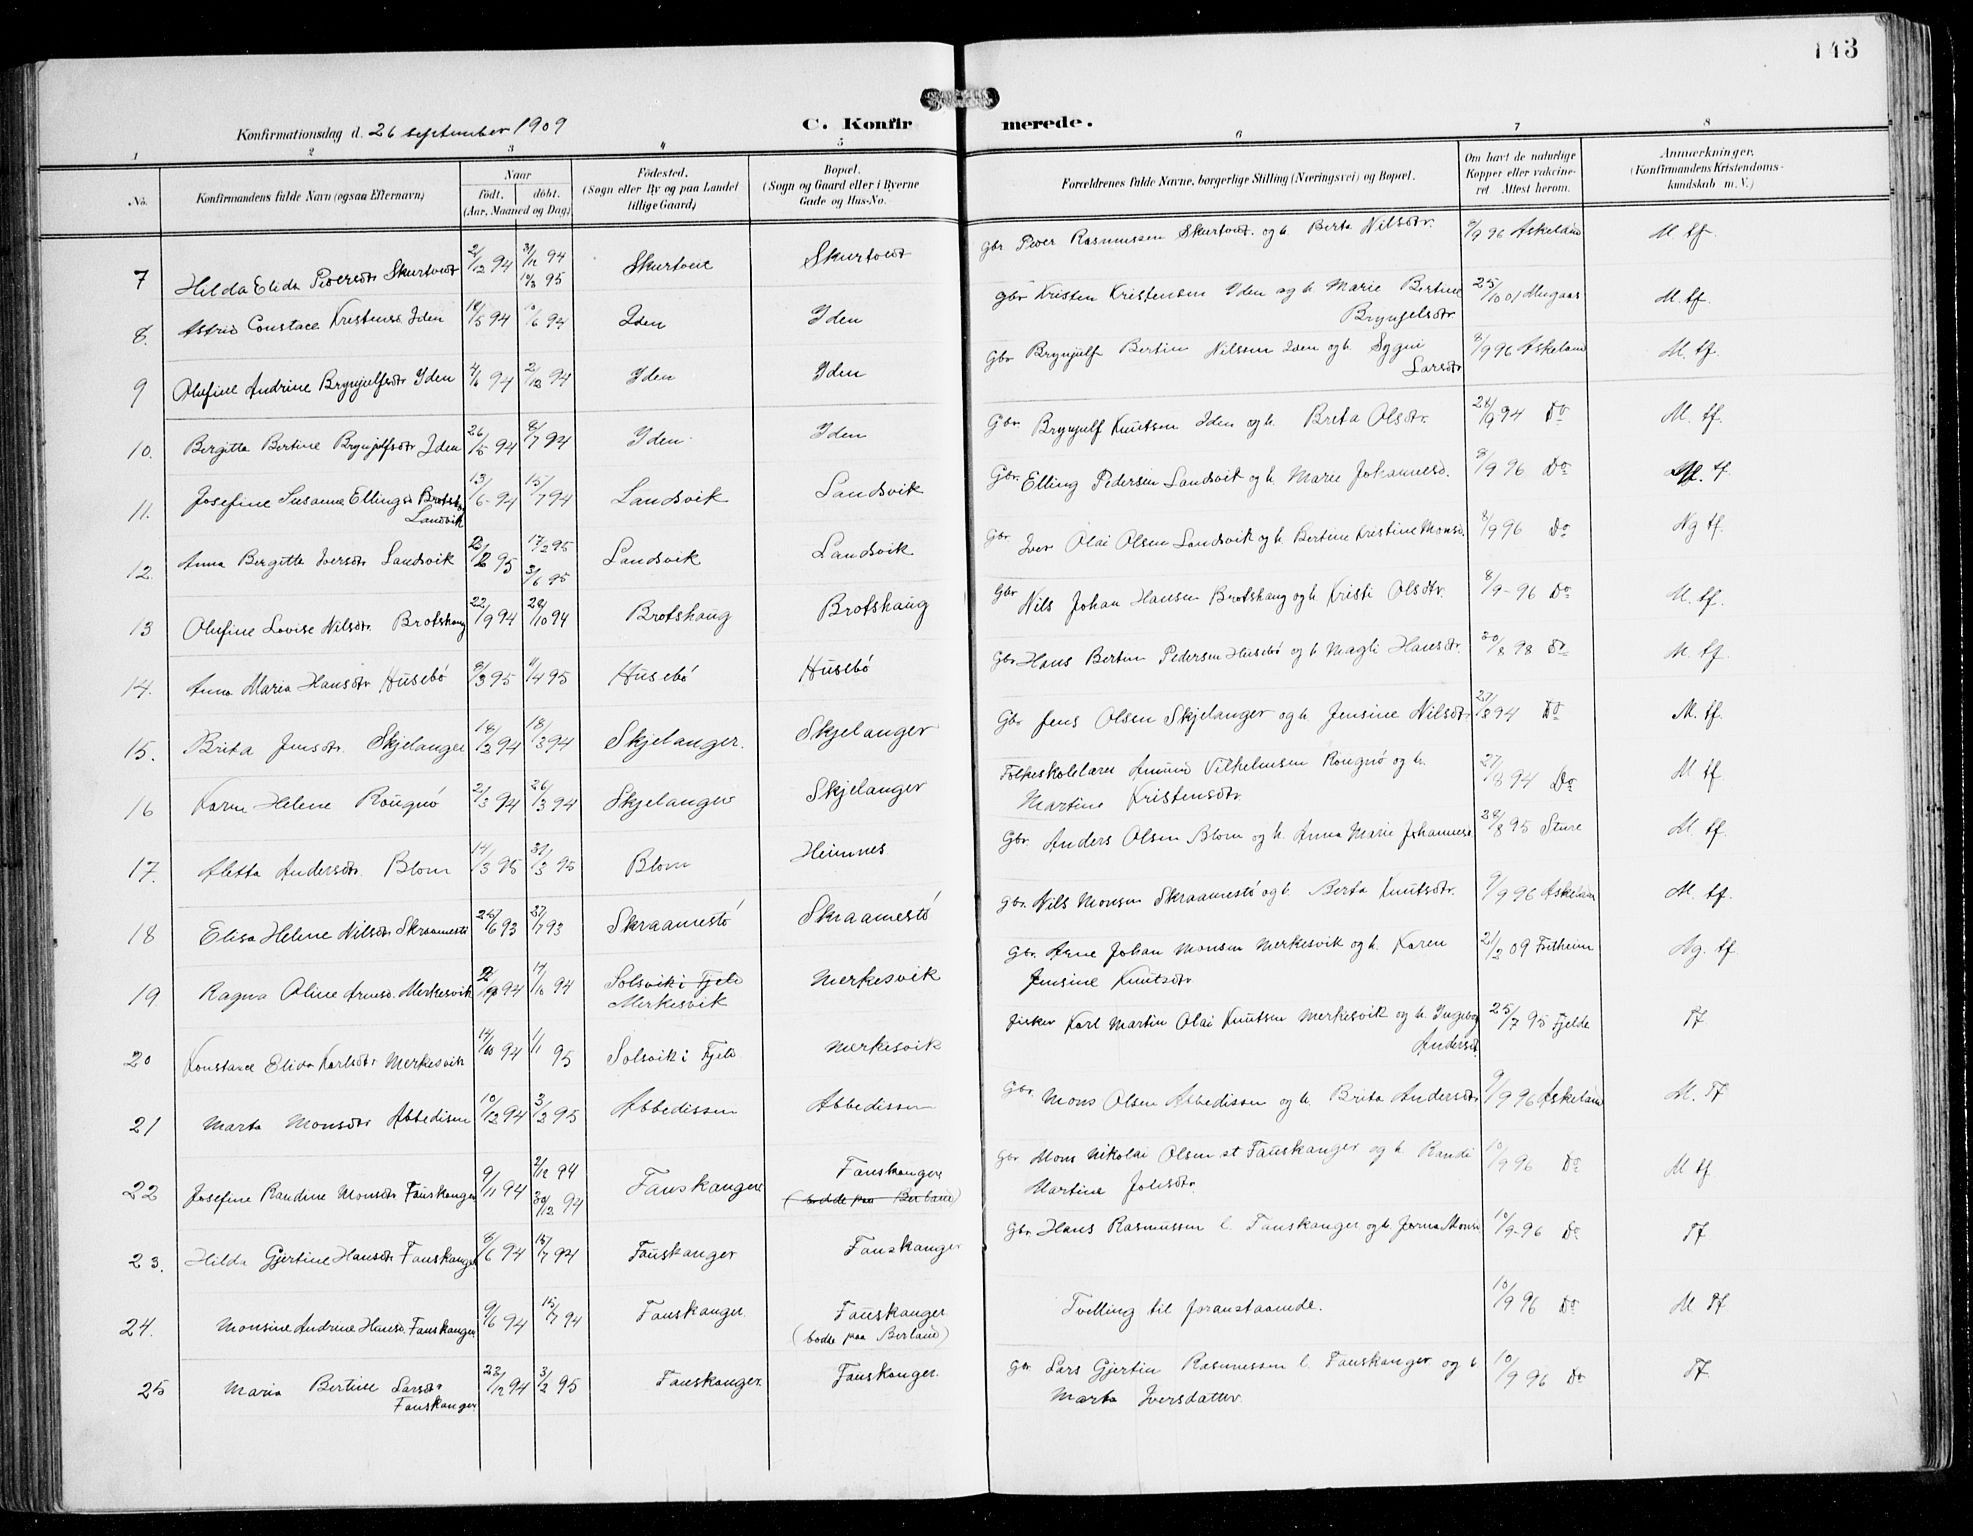 143
Konfirmationsdag d. 26 september 1909
C. Konfirmerede.
1 2 3 4 5 6 7 8
No.
Konfirmandens fulde Navn (ogsaa Efternavn)
Naar født. døbt. (Aar, Maaned og Dag)
Fødested. (Sogn eller By og paa Landet tillige Gaard)
Bopæl. (Sogn og Gaard eller i Byerne Gade og Hus-No.
Forældrenes fulde Navne, borgerlige Stilling (Næringsvei) og Bopæl.
Om havt de naturlige Kopper eller vakcineret Attest herom.
Anmærkninger. (Konfirmandens Kristendomskundskab m. V.)
7 Hilda Elida Pedersdtr Skurtvedt 2/12 94 3/12 94 10/3 95 Skurtveit Skurtvedt Gbr Peder Rasmussen Skurtvedt og h. Berta Nilsdtr. 9/9 96 Askeland M. tf.
8. Astrid Constace Kristensd. Iden 18/5 94 10/6 94 Iden Iden Gbr Kristen Kristensen Iden og h. Marie Bertine Bryngelsdtr. 25/10 01 Mugaas M. tf.
9 Olufine Andrine Brynjulfsdtr Iden 4/1 94 2/12 94 Iden Iden Gbr Brynjulf Bertin Nilssen Iden og h. Sygni Larsdtr 8/9 96 Askeland M. tf.
10. Bergitta Bertine Brynjulfsdtr Iden 26/5 94 8/7 94 Iden Iden Gbr. Brynjulf Knutsen Iden og h. Brita Olsdtr. 24/9 94 Do M. tf.
11. Josefine Susanne Ellingsd Brotshg Landsvik 13/6 94 15/7 94 Landsvik Landsvik Gbr. Elling Pedersen Landsvik og h. Marie Johannesd. 8/9 96 Do M. tf
12. Anna Bergitte Iversdtr Landsvik 95 17/2 95 3/6 95 Landsvik Landsvik Gbr Iver Olai Olsen Landsvik og h. Bertine Kristine Monsd. 8/9 96 Do Ng tf.
13 Olufine Lovise Nilsdtr. Brotshaug 22/9 94 28/10 94 Brotshaug Brotshaug Gbr Nils Johan Hansen Brotshaug og h. Kristi Olsdtr. 8/9 - 96 Do M. tf.
14. Anna Maria Hansdtr Husebø 9/3 95 11/4 95 Husebø Husebø Gbr Hans Bertin Pedersen Husebø og h. Magli Hansdtr. 30/8 98 Do M. tf.
15. Brita Jensdtr. Skjelanger 18/2 94 18/3 94 Skjelanger. Skjelanger Gbr Jens Olsen Skjelanger og h. Jensine Nilsdtr 27/8 94 Do M. tf.
16 Karen Helene Rougnø 2/3 94 26/3 94 Skjelanger Skjelanger Folkeskolelærer Amund Vilhelmsen Rougnø og h. Martine Kristensdtr. 27/8 94 Do M tf.
17. Aletta Andersdtr. Blom 14/3 95 31/3 95 Blom Heimnes Gbr. Anders Olsen Blom og h. Anna Marie Johannesd. 8 95 Sture M. tf.
18 Elisa Helene Nilsdtr Skraamestø 25/6 93 7 93 Skraamestø Skraamestø Gbr. Nils Monsen Skraamestø og h. Berta Knutsdtr. 9/9 96 Askeland M. tf.
19 Ragna Oline Arnesd. Merkesvik 94 14/10 94 Solsvik i Fjeld Merkesvik Merkesvik Gbr. Arne Johan Monsen Merkesvik og h. Karen Jensine Knutsdtr. 21/2 09 Fridheim Ng. tf.
20 Konstance Elida Karlsdtr Merkesvik 14/10 94 1/1 95 Solsvik i Fjeld Merkesvik Fisker Karl Martin Olai Knutsen Merkesvik og h. Ingeborg Andersd. 25/7 95 Fjelde Tf
21 Marta Monsdtr Abbedisen 10/12 94 3/2 95 Abbedissen Abbedissen Gbr. Mons Olsen Abbedissen og h. Brita Andersdtr 9/9 96 Askeland M. Tf
22 Josefine Randine Monsdtr Fauskanger 9/11 94 2/12 94 30/12 94 Fauskanger Fauskanger (bodde paa Berland) Gbr Mons Nikolai Olsen st Fauskanger og h. Randi Martina Johsdtr. 10/9 96 Do M tf
23. Hilda Gjertine Hansdtr Fauskanger 8/6 94 15/7 94 Fauskanger Fauskanger Gbr. Hans Rasmussen l. Fauskanger og h. Jorma Monsd 10/9 - 96 Do Tf
24. Monsine Andrine Hansd. Fauskanger 9/6 94 15/7 94 Fauskanger. Fauskanger (bodde paa Berland) Tvilling til foranstaaende. 10/9 96 Do M Tf
25 Maria Bertine Larsdtr Fauskanger 22/12 94 3/2 95 Fauskanger. Fauskanger. Gbr Lars Gjertin Rasmussen l. Fauskanger og h Marta Iversdatter. 10/9 96 Do Tf